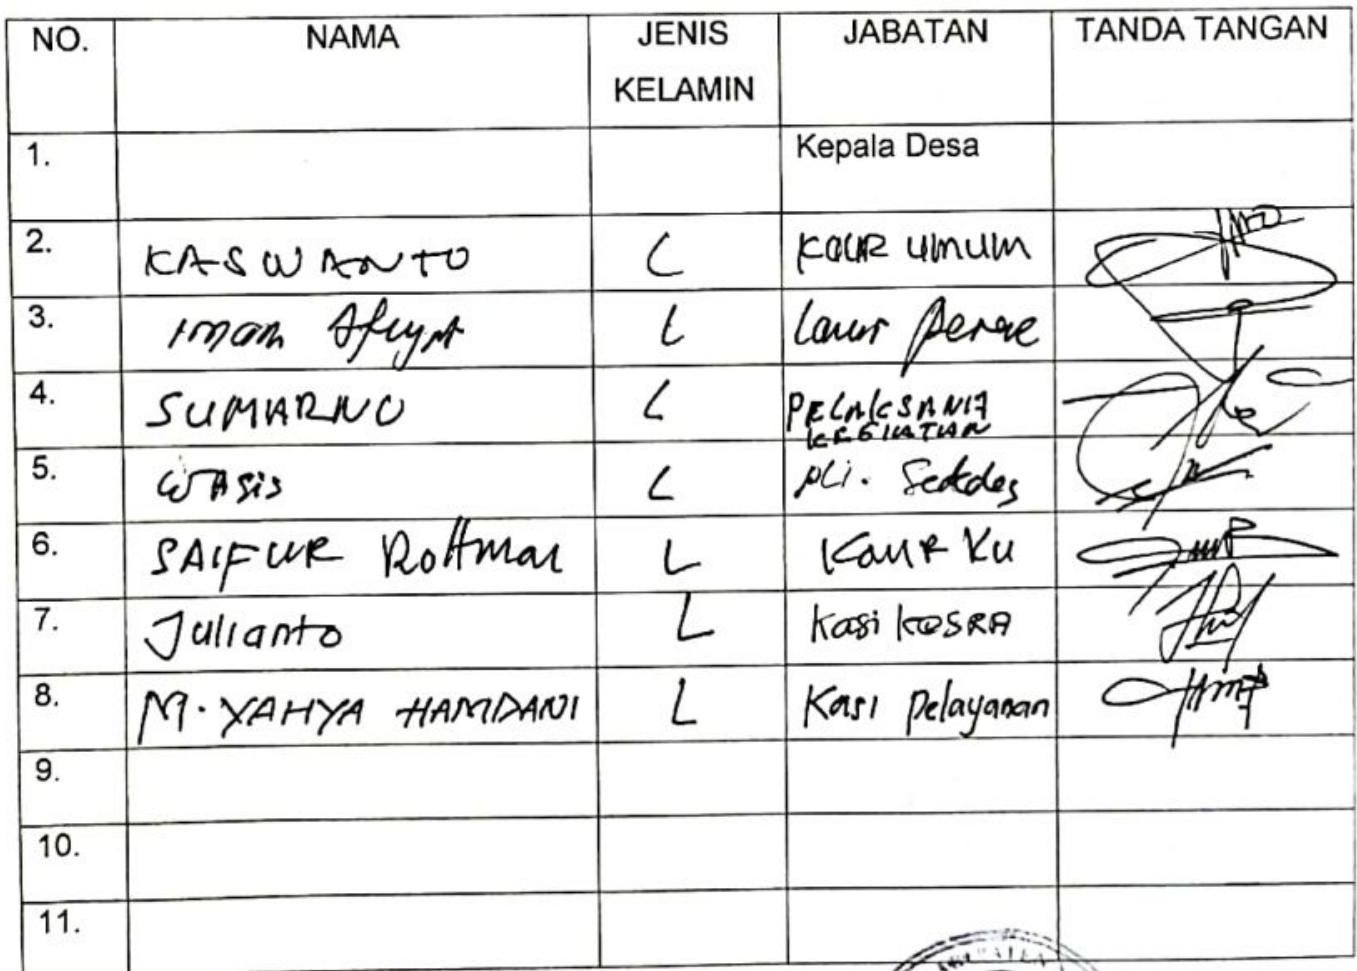 NO. NAMA JENIS KELAMIN JABATAN TANDA TANGAN
1. Kepala Desa
2. KASWANTO L KAUR UMUM
3. Iman L
4. SUMARNO L PELAKSANA
KEGIATAN
5. WASIS L Sekdes
6. SAIFUR Rohman L Kaur Ku
7. Julianto L Kasi KESRA
8. M. YAHYA HAMDANI L Kasi Pelayanan
9.
10.
11.